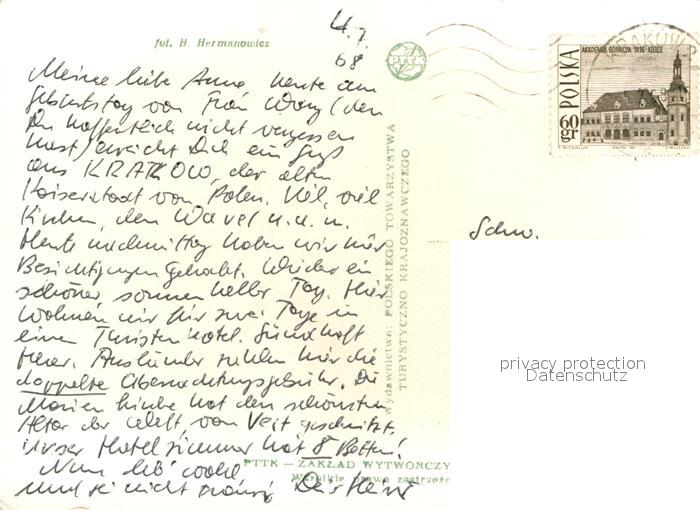 fot. H. Hermanowicz
4.7.
68
PTTK
POLSKA
AKADEMIA GÓRNICZA 1816 KIELCE
60 gr
KRAKÓW
Meine liebe Anne heute am
Geburtstag von Frau (den
Du hoffentlich nicht vergessen
hast) erreicht Dich ein Gruß
aus KRAKOW, der alten
Kaiserstadt von Polen. Viel, viel
Kirchen, den Wavel u.a.m.
Heute nachmittag haben wir hier
Besichtigungen gehabt. Wieder ein
schöner, sonnenheller Tag. Hier
wohnen wir für zwei Tage in
einem Touristenhotel. Sündhaft
teuer. Ausländer zahlen hier die
doppelte Übernachtungsgebühr. Die
Marienkirche hat den schönsten
Altar der Welt, von Veit geschnitzt.
Unser Hotelzimmer hat 8 Betten!
Nun leb' wohl
und sei nicht traurig Dein
Schw.
Wydawnictwo: POLSKIEGO TOWARZYSTWA
TURYSTYCZNO KRAJOZNAWCZEGO
PTTK — ZAKŁAD WYTWÓRCZY
Wszelkie prawa zastrzeżo
privacy protection
Datenschutz